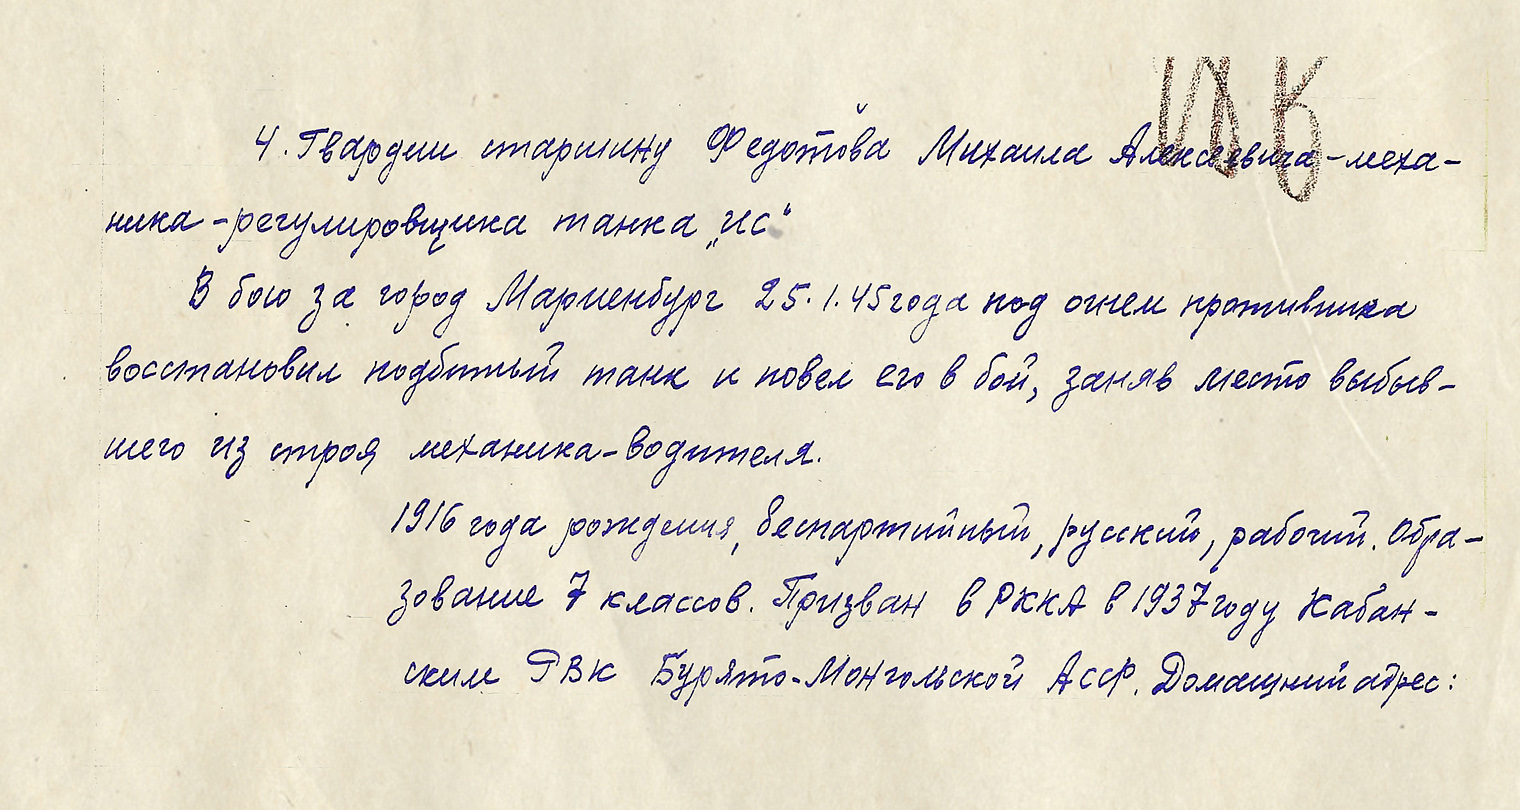 4. Гвардии старшину Федотова Михаила Алексеевича - меха-
ника - регулировщика танка „ИС“
В бою за город Мариенбург 25.1.45 года под огнем противника
восстановил подбитый танк и повел его в бой, заняв место выбыв-
шего из строя механика-водителя.
1916 года рождения, беспартийный, русский, рабочий. Обра-
зование 7 классов. Призван в РККА в 1937 году Кабан-
ским РВК Бурято-Монгольской АССР. Домашний адрес: